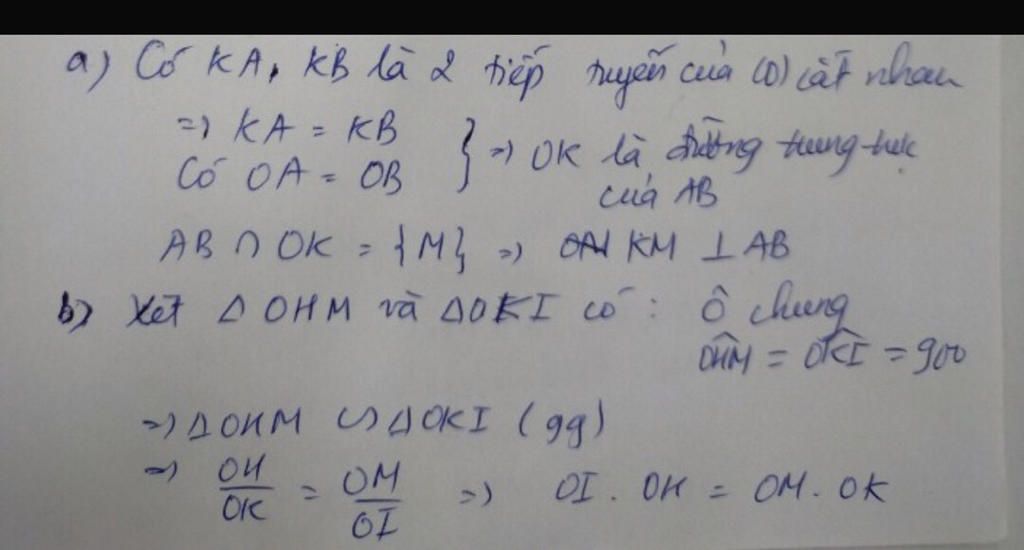 a) Có KA, KB là 2 tiếp tuyến của (O) cắt nhau
=> KA = KB
Có OA = OB
} => OK là đường trung trực
của AB
AB ∩ OK = {M} => KM ⊥ AB
b) Xét Δ OHM và ΔOKI có : Ô chung
OĤM = OK̂I = 900
=> ΔOHM ∽ ΔOKI (gg)
=> OH/OK = OM/OI => OI . OH = OM . OK